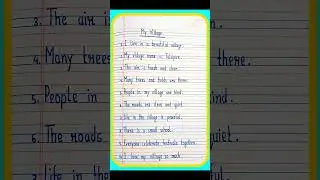 3. The air i
4. Many trees
5. People in
6. The roads
My Village
1. I live in a beautiful village.
2. My village name is
3. The air is fresh and clean.
4. Many trees and are there.
5. People in my village are kind.
6. The roads are clean and quiet.
7. Life in the village is peaceful.
8. There is a small school.
9. Everyone celebrates festivals together.
10. I love my village so much.
there.
quiet.